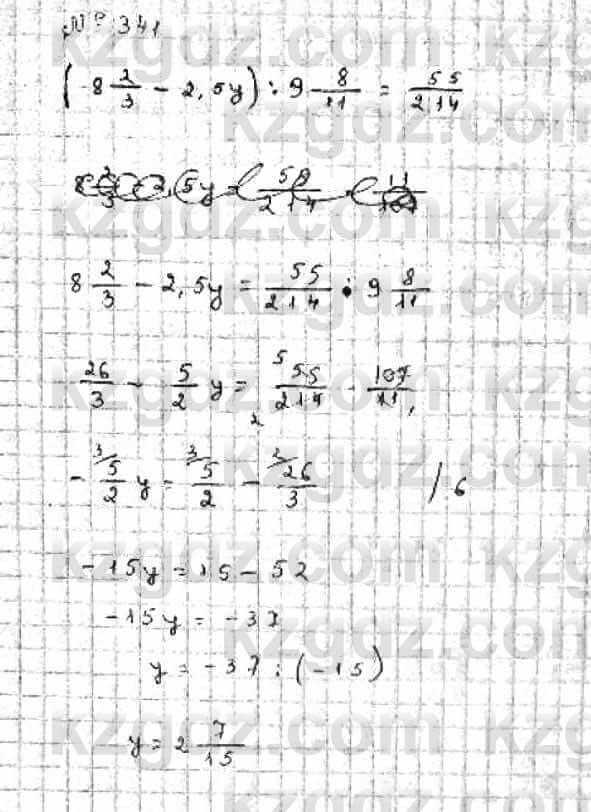 № 341
(8 2/3 - 2,5y) : 9 8/11 = 55/214
8 2/3 - 2,5y = 55/214 · 9 8/11
26/3 - 5/2 y = 55/214 · 107/11
- 5/2 y = 5/2 - 26/3 / 6
-15y = 15 - 52
-15y = -37
y = -37 : (-15)
y = 2 7/15
kzgdz.com